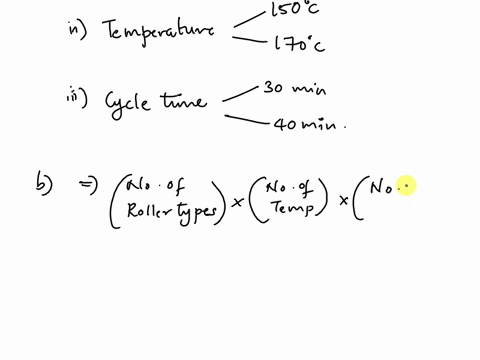 150°C
ii) Temperature
170°C
30 min
iii) Cycle time
40 min.
b) ⇒ (No. of Roller types) × (No. of Temp) × (No.